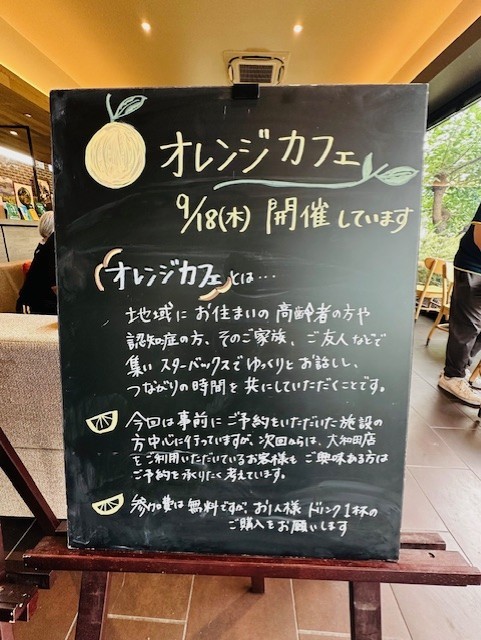 オレンジカフェ
9/18(木) 開催しています
オレンジカフェとは…
地域にお住まいの高齢者の方や
認知症の方、そのご家族、ご友人などで
集い スターバックスでゆっくりとお話しし、
つながりの時間を共にしていただくことです。
今回は事前にご予約をいただいた施設の
方中心に行っていますが、次回からは、大和田店
をご利用いただいているお客様も ご興味ある方は
ご予約を承りたく考えています。
参加費は無料ですが、お1人様 ドリンク1杯の
ご購入をお願いします